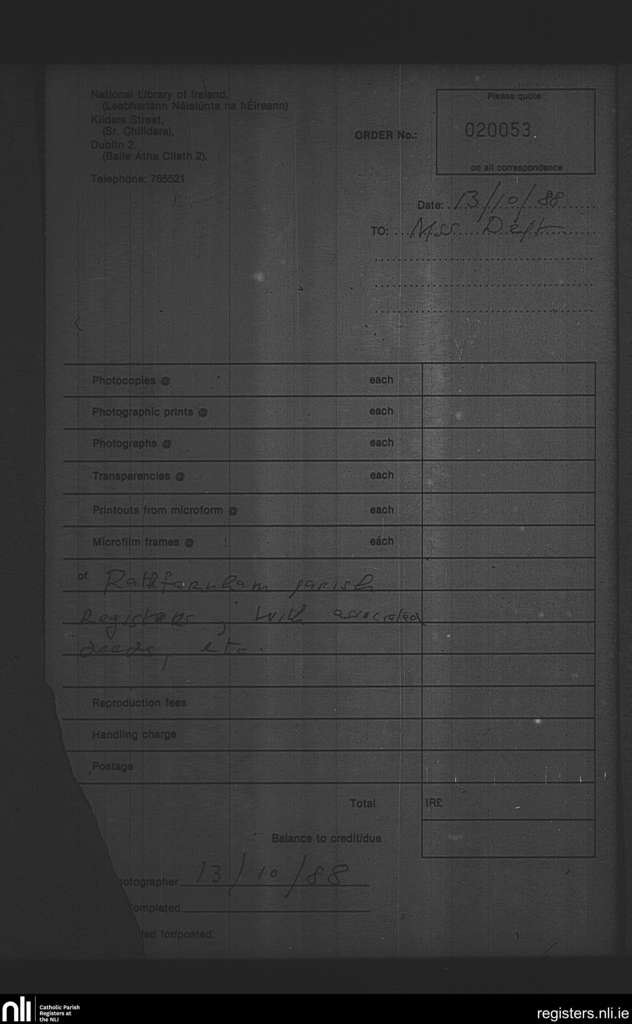 National Library of Ireland,
(Leabharlann Náisiúnta na hÉireann)
Kildare Street,
(Sr. Chilldara),
Dublin 2.
(Baile Átha Cliath 2).
Telephone: 765521
Please quote
ORDER No.: 020053
on all correspondence
Date: 13/10/88
TO: Mss. Dept
Photocopies @ each
Photographic prints @ each
Photographs @ each
Transparencies @ each
Printouts from microform @ each
Microfilm frames @ each
of Rathfarnham parish
Registers, with associated
deeds, etc.
Reproduction fees
Handling charge
Postage
Total IR£
Balance to credit/due
otographer 13/10/88
ompleted
ted for/posted.
nli Catholic Parish
Registers at
the NLI
registers.nli.ie